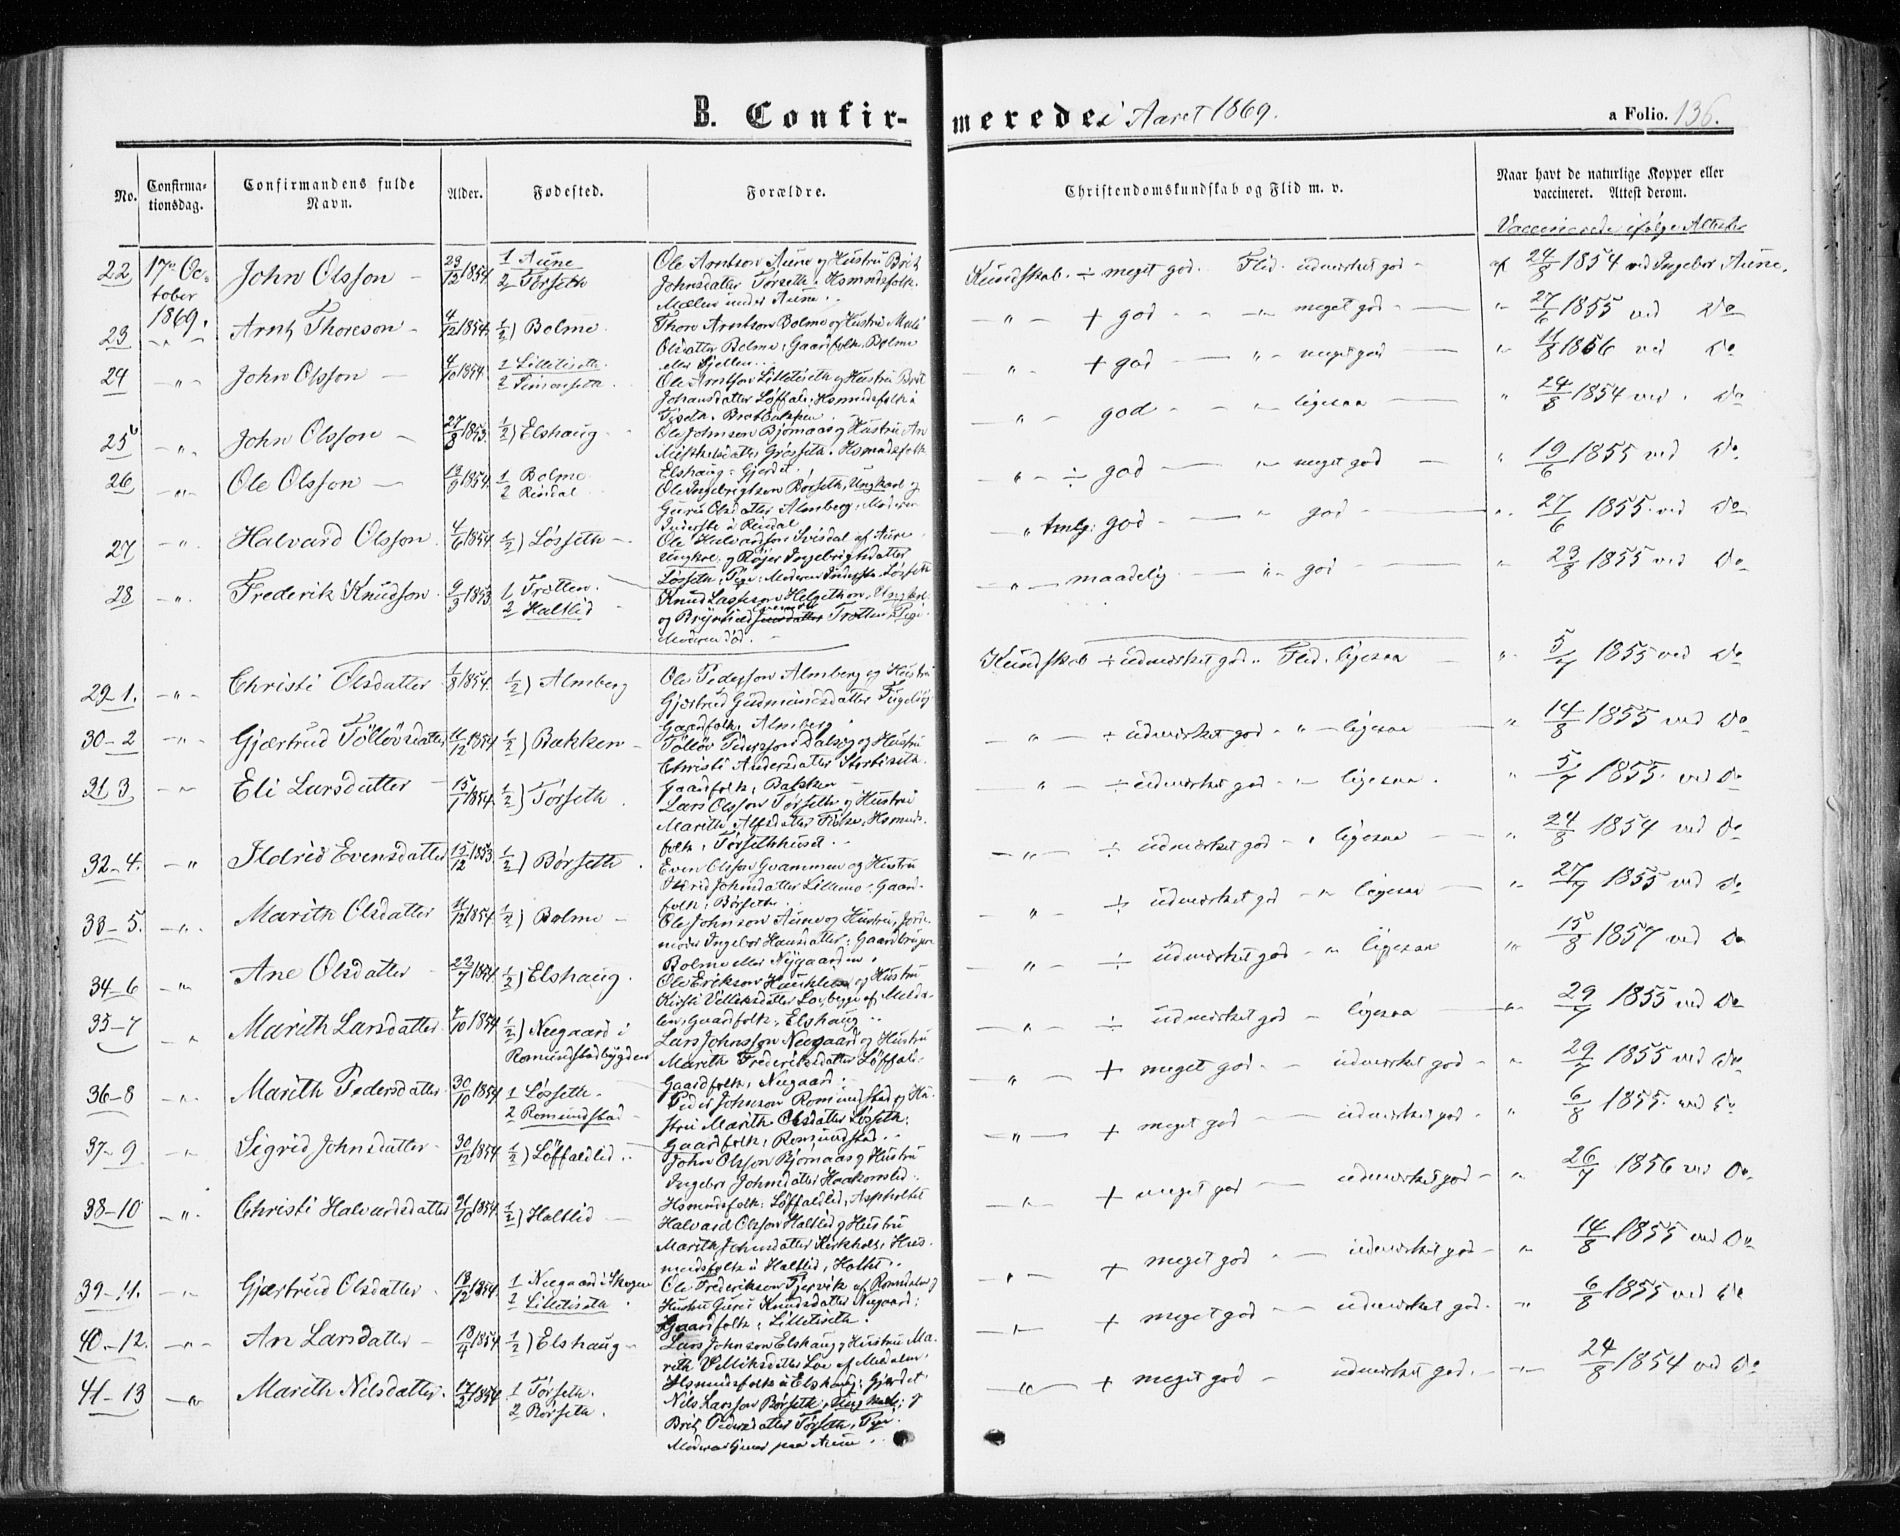 B. Confirmerede i Aaret 1869.
a Folio. 136.
No.
Confirmationsdag.
Confirmandens fulde Navn.
Alder.
Fødested.
Forældre.
Christendomskundskab og Flid m. v.
Naar havt de naturlige Kopper eller vaccineret. Attest derom.
Vaccinerede ifølge Attester
22 17de October 1869. John Olsson - 23/12 1854 1 Aune 2 Torseth
Ole Arntson Aune og Hustru Brit
Johnsdatter Torseth. Hsmndsfolk.
Mælen under Aune.
Kundskab. ÷ meget god. Flid. udmærket god - af 24/8 1854 ved Ingebor Aune.
23 - " - Arnt Thoreson - 4/12 1854. 1/2) Bolme.
Thore Arntson Bolme og Hustru
Olsdatter Bolme, Gaardfolk, Bolme
- " - + god - " - meget god - " 27/6 1855 ved Do
24 - " - John Olsson - 4/10 1854. 1 Lilletiseth 2
Ole Arntson Lilletiseth og Hustru Brit
Johansdatter Løffald. Hsmndsfolk i
Tiseth.
- " - + god - " - meget god - " 11/8 1856 ved Do
25 - " - John Olsson - 27/8 1853. 1/2) Elshaug
Ole Johnson Bjørnaas og Hustru An
Hsmndsfolk
Elshaug: Gjerdet.
- " - god - " - ligesaa - " 24/8 1854 ved Do
26 - " - Ole Olsson - 1854. 1 Bolme 2 Rindal
Ole Ingebrigtson Børseth, Ungkarl og
Guru Olsdatter Almberg, Moderen
Inderste i Rindal
- " - ÷ god - " - meget god - " 19/6 1855 ved Do
27 - " - Halvard Olsson. 4/6 1854. 1/2) Løsseth -
Ole Halvardson af Aune
Ungkrl. og Ingebrigtsdatter
Løsseth, Pige, Moderen Inderste Løsseth
- " tmlg: god - " god - " 27/6 1855. ved Do
28 - " - Frederik Knudson. 9/3 1853 1 Trøtten. 2 Haltlid
Knud Larsson Helgethon, Ungkrl.
og Brynhild Trøtten, Pige.
Moderen død.
- " - maadelig - " - god - " 23/8 1855 ved Do
29-1. - " - Christi Olsdatter 1/8 1854. 1/2) Almberg
Ole Pedersson Almberg og Hustru
Gjertrud Gudmundsdatter Fugelsøy
Gaardfolk, Almberg
Kundskab ÷ udmærket god. Flid. ligesaa - " 5/7 1855 ved Do
30-2 - " - Gjærtrud Tølløvsdatter 11/12 1854 1/2) Bakken -
Tølløv Pedersson Dalsøy og Hustru
Christi Andersdatter Stortiseth.
Gaardfolk, Bakken
- " - ÷ udmærket god - " - ligesaa - " 14/8 1855 ved Do
31 3 - " - Eli Larsdatter - 15/7 1854. 1/2) Torseth.
Lars Olsson Torseth og Hustru
Marith Alfsdatter Fiske, Hsmnds-
folk, Torsethhuset.
- " - ÷ udmærket god - " ligesaa. " 5/7 1855. ved Do
32-4. - " Ildrid Evensdatter 15/12 1853. 1/2) Børseth
Even Olsson Gvammen og Hustru
Ildrid Johnsdatter Lillemo. Gaard-
folk, Børseth.
- " - ÷ udmærket god - " ligesaa - " 24/8 1854 ved Do
33-5. - " - Marith Olsdatter 11/12 1854. 1/2) Bolme -
Ole Johnson Aune og Hustru, Jorde-
moder Ingebor Hansdatter, Gaardbruger
Bolme eller Nygaarden.
- " - ÷ udmærket god - " ligesaa - " 27/7 1855 ved Do
34-6 - " - Ane Olsdatter - 23/7 1854. 1/2) Elshaug.
Ole Erikson og Hustru
Kirsti Villiksdatter Loe, begge af Melda-
len, Gaardfolk, Elshaug.
- " - ÷ udmærket god - " ligesaa " 15/8 1857 ved Do
35-7 " Marith Larsdatter 7/10 1854. 1/2) Nergaard i Romundstadbygden
Lars Johnsson Nergaard og Hustru
Marith Frederiksdatter Løffald.
Gaardfolk, Nergaard
- " - ÷ udmærket god - ligesaa - " 29/7 1855 ved Do
36-8 - " - Marith Pedersdatter 30/10 1854 1 Løsseth. 2 Romundstad
Peder Johnson Romundstad og Hu-
stru Marith Olsdatter Løsseth.
Gaardfolk, Romundstad.
- " - + meget god - udmærket god - " 29/7 1855 ved Do
37-9 - " - Sigrid Johnsdatter 30/12 1854 1/2) Løffaldlid.
John Olsson Bjørnaas og Hustru
Ingebor Johnsdatter Haakonslid.
Hsmndsfolk. Løffaldlid, Aspholtet
- " - + meget god - udmærket god - " 6/8 1855. ved Do
38-10 - " - Christi Halvardsdatter 26/10 1854. 1/2) Haltlid -
Halvard Olsson Haltlid og Hustru
Marith Johnsdatter Kirkholt, Hus-
mndsfolk i Haltlid, Holtet.
- " - + meget god - udmærket god - " 26/7 1856 ved Do
39-11. - " - Gjærtrud Olsdatter. 18/12 1854. 1 Nergaard i Skogen 2 Lilletiseth.
Ole Frederikson Fjervik af Romsdalen og
Hustru Guru Knudsdatter Nergaard;
Gaardfolk, Lilletiseth.
- " - + meget god - udmærket god - " 14/8 1855 ved Do
40-12. - " - An Larsdatter - 18/4 1854 1/2) Elshaug -
Lars Johnson Elshaug og Hustru Ma-
rith Villiksdatter Loe af Meldalen.
Hsmndsfolk i Elshaug; Gjerdet.
- " - + meget god - udmærket god. " 6/8 1855 ved Do
41-13 - " Marith Nilsdatter. 17/2 1854. 1 Torseth. 2 Børseth.
Nils Larsson Børseth, Ungkarl; og
Brit Pedersdatter Torseth, Pige.
Moderen tjener paa Aune.
- " - + meget god - udmærket god. - " 24/8 1854 ved Do